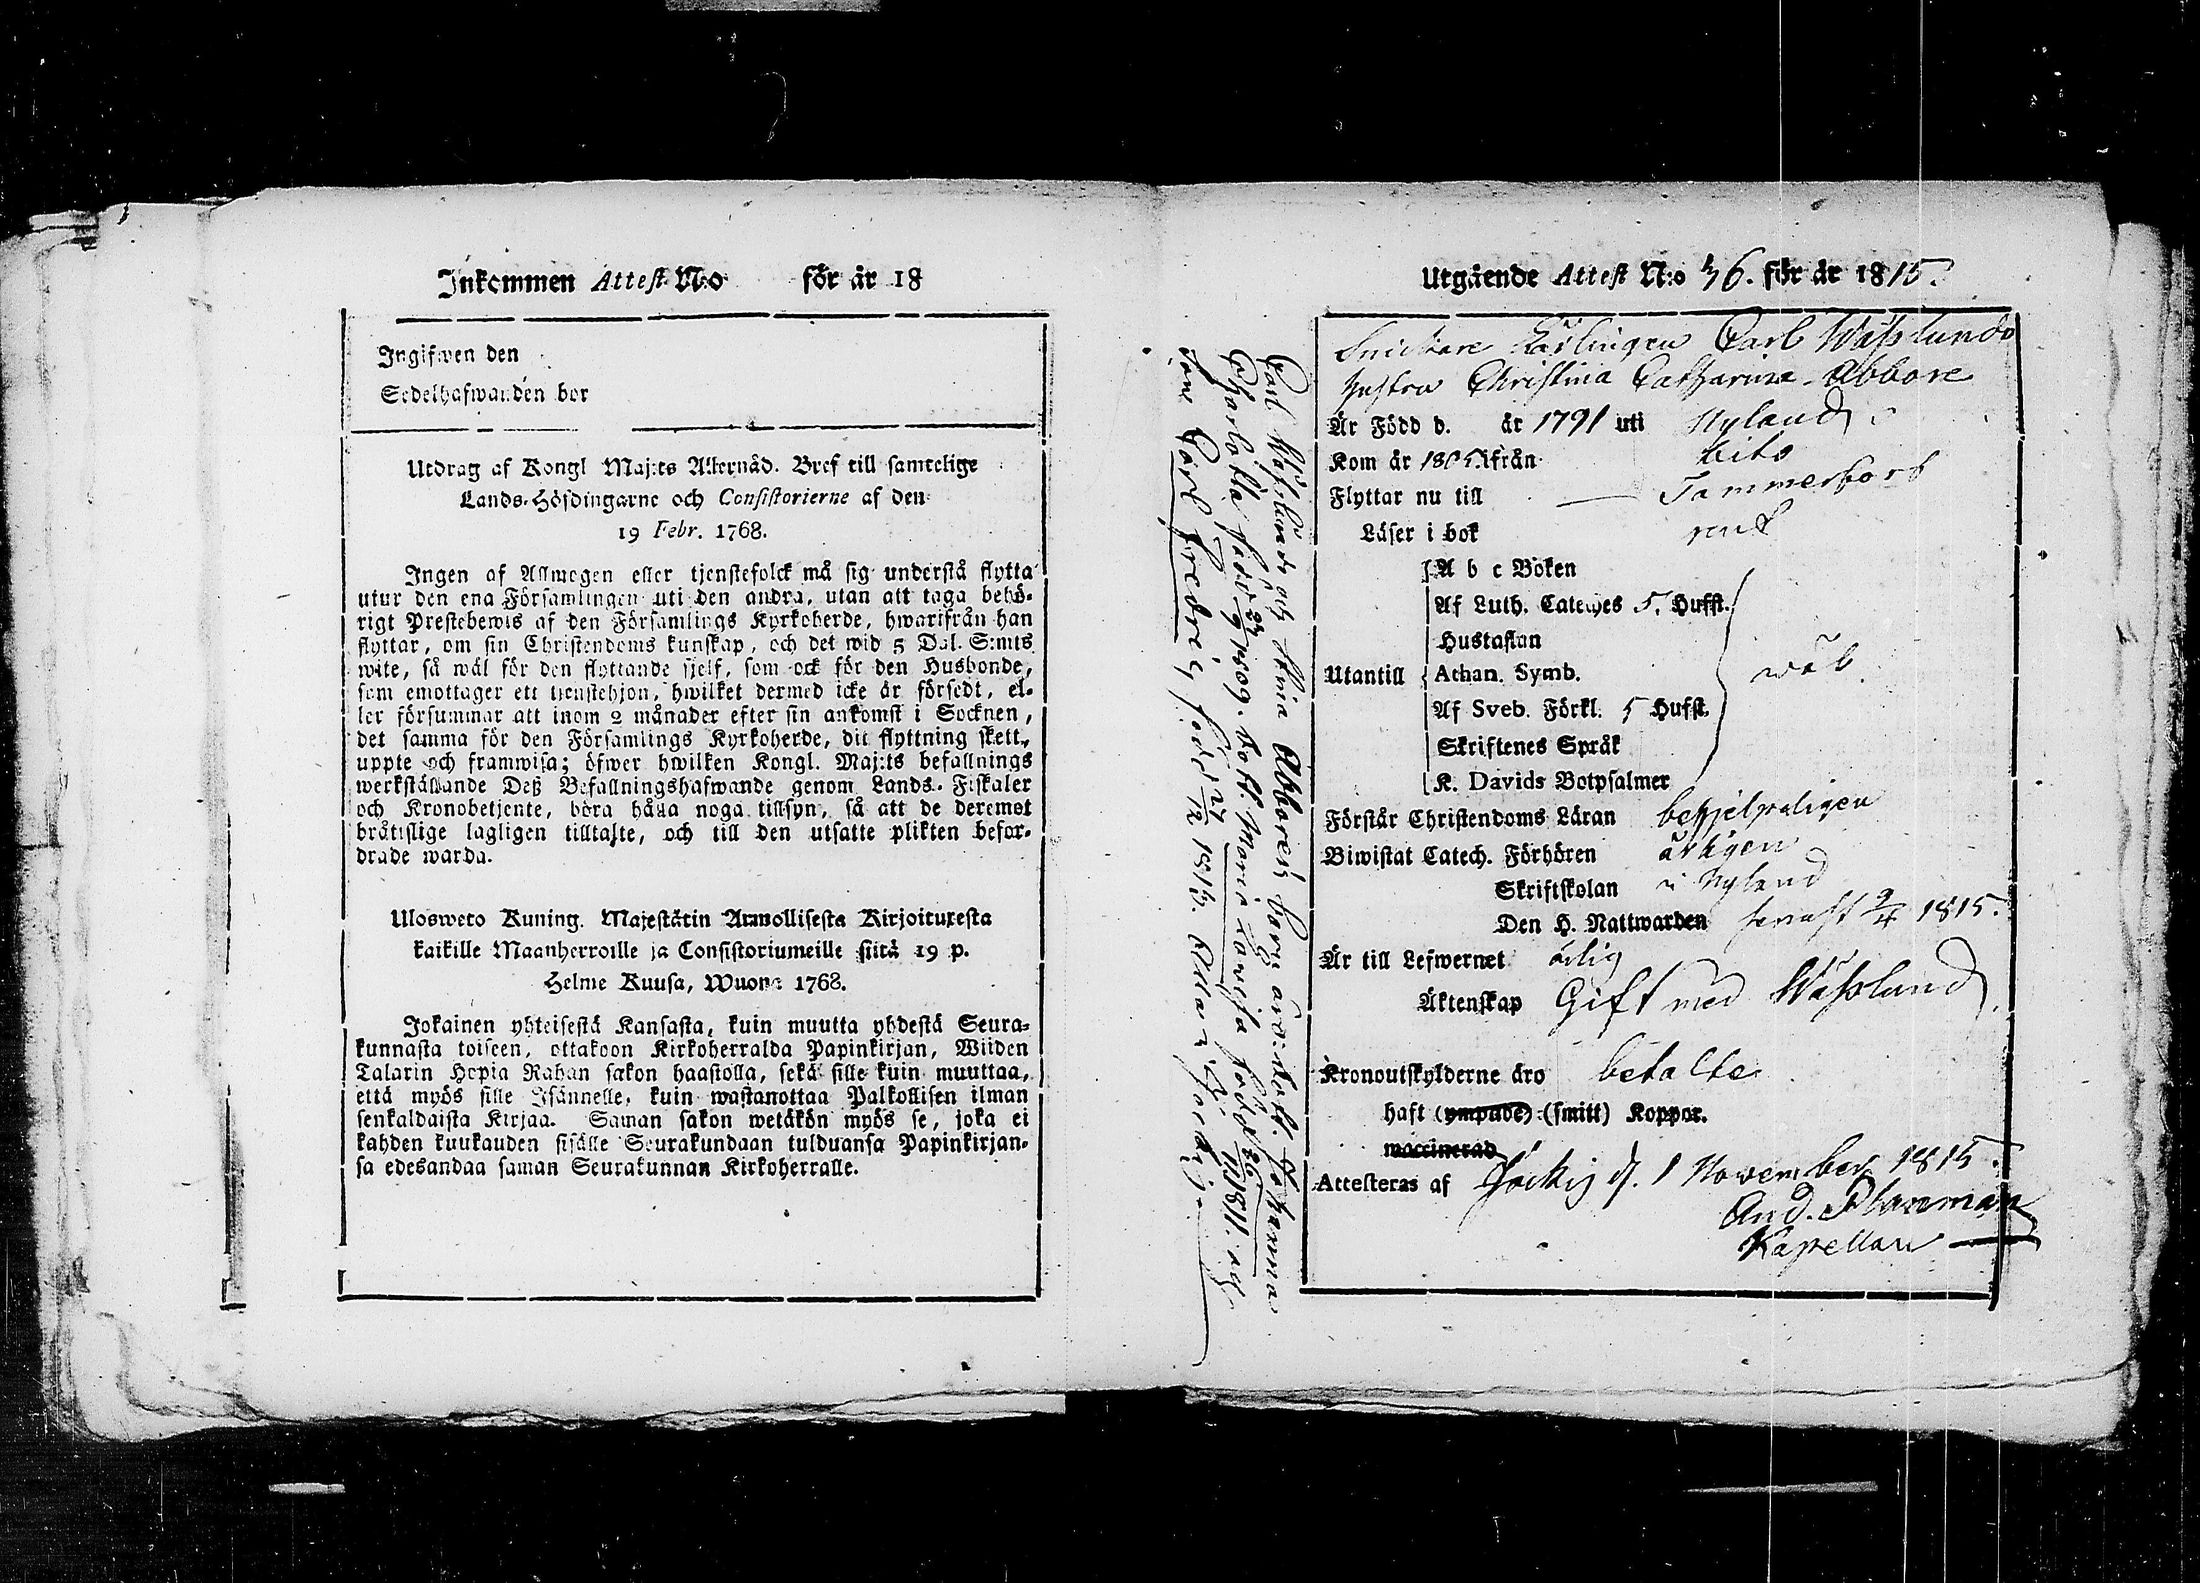 Inkommen Attest N:o för år 18
Ingifwen den
Sedelhafwanden bor
Utdrag af Kongl Maj:ts Allernåd. Bref till samtelige
Lands-Höfdingarne och Consistorierne af den
19 Febr. 1768.
Ingen af Allmogen eller tjenstefolck må sig understå flytta
utur den ena Församlingen uti den andra, utan att taga behö-
rigt Prestebewis af den Församlings Kyrkoherde, hwarifrån han
flyttar, om sin Christendoms kunskap, och det wid 5 Dal. S:mts
wite, så wäl för den flyttande sjelf, som ock för den Husbonde,
som emottager ett tjenstehjon, hwilket dermed icke är försedt, el-
ler försummar att inom 2 månader efter sin ankomst i Socknen,
det samma för den Församlings Kyrkoherde, dit flyttning skett,
uppte och framwisa; öfwer hwilken Kongl. Maj:ts befallnings
werkställande Deß Befallningshafwande genom Lands-Fiskaler
och Kronobetjente, böra hålla noga tillsyn, så att de deremot
bråtislige lagligen tilltalte, och till den utsatte plikten befor-
drade warda.
Ulosweto Kuning. Majestätin Armollisesta Kirjoituxesta
kaikille Maanherroille ja Consistoriumeille siitä 19 p.
Helme Kuusa, Wuona 1768.
Jokainen yhteisestä Kansasta, kuin muutta yhdestä Seura-
kunnasta toiseen, ottakoon Kirkoherralda Papinkirjan, Wiiden
Talarin Hopia Rahan sakon haastolla, sekä sille kuin muuttaa,
että myös sille Isännelle, kuin wastanottaa Palkollisen ilman
senkaldaista Kirjaa. Saman sakon wetäkön myös se, joka ei
kahden kuukauden sisälle Seurakundaan tulduansa Papinkirjan-
sa edesandaa saman Seurakunnan Kirkoherralle.
Carl Wäßlunds och Stina Abbores barn äro: dott. Johanna
Charlotta född 1809. dott. Maria Lovisa född 1811. och
son Carl Fredric född 27/12 1813.
Utgående Attest N:o 36. för år 1815.
Snickare Lärlingen Carl Wäßlunds
hustru Christina Catharina Abbore
Är Född d. år 1791 uti Nyland
Kom år 1805 ifrån dito
Flyttar nu till Tammerfors
Läser i bok rent
A b c Boken
Af Luth. Cateches 5. Hufst.
Hustaflan
Utantill Athan. Symb. wäl
Af Sveb. Förkl. 5 Hufst.
Skriftenes Språk
K. Davids Botpsalmer
Förstår Christendoms Läran behjelpeligen
Biwistat Catech. Förhören årligen
Skriftskolan i Nyland
Den H. Nattwarden senast 9/4 1815.
Är till Lefwernet ärlig
Äktenskap Gift med Wäßlund
Kronoutskylderne äro betalte
haft (ympade) (smitt) Koppor.
vaccinerad
Attesteras af d. 1 November 1815.
And. Planman
Kapellan